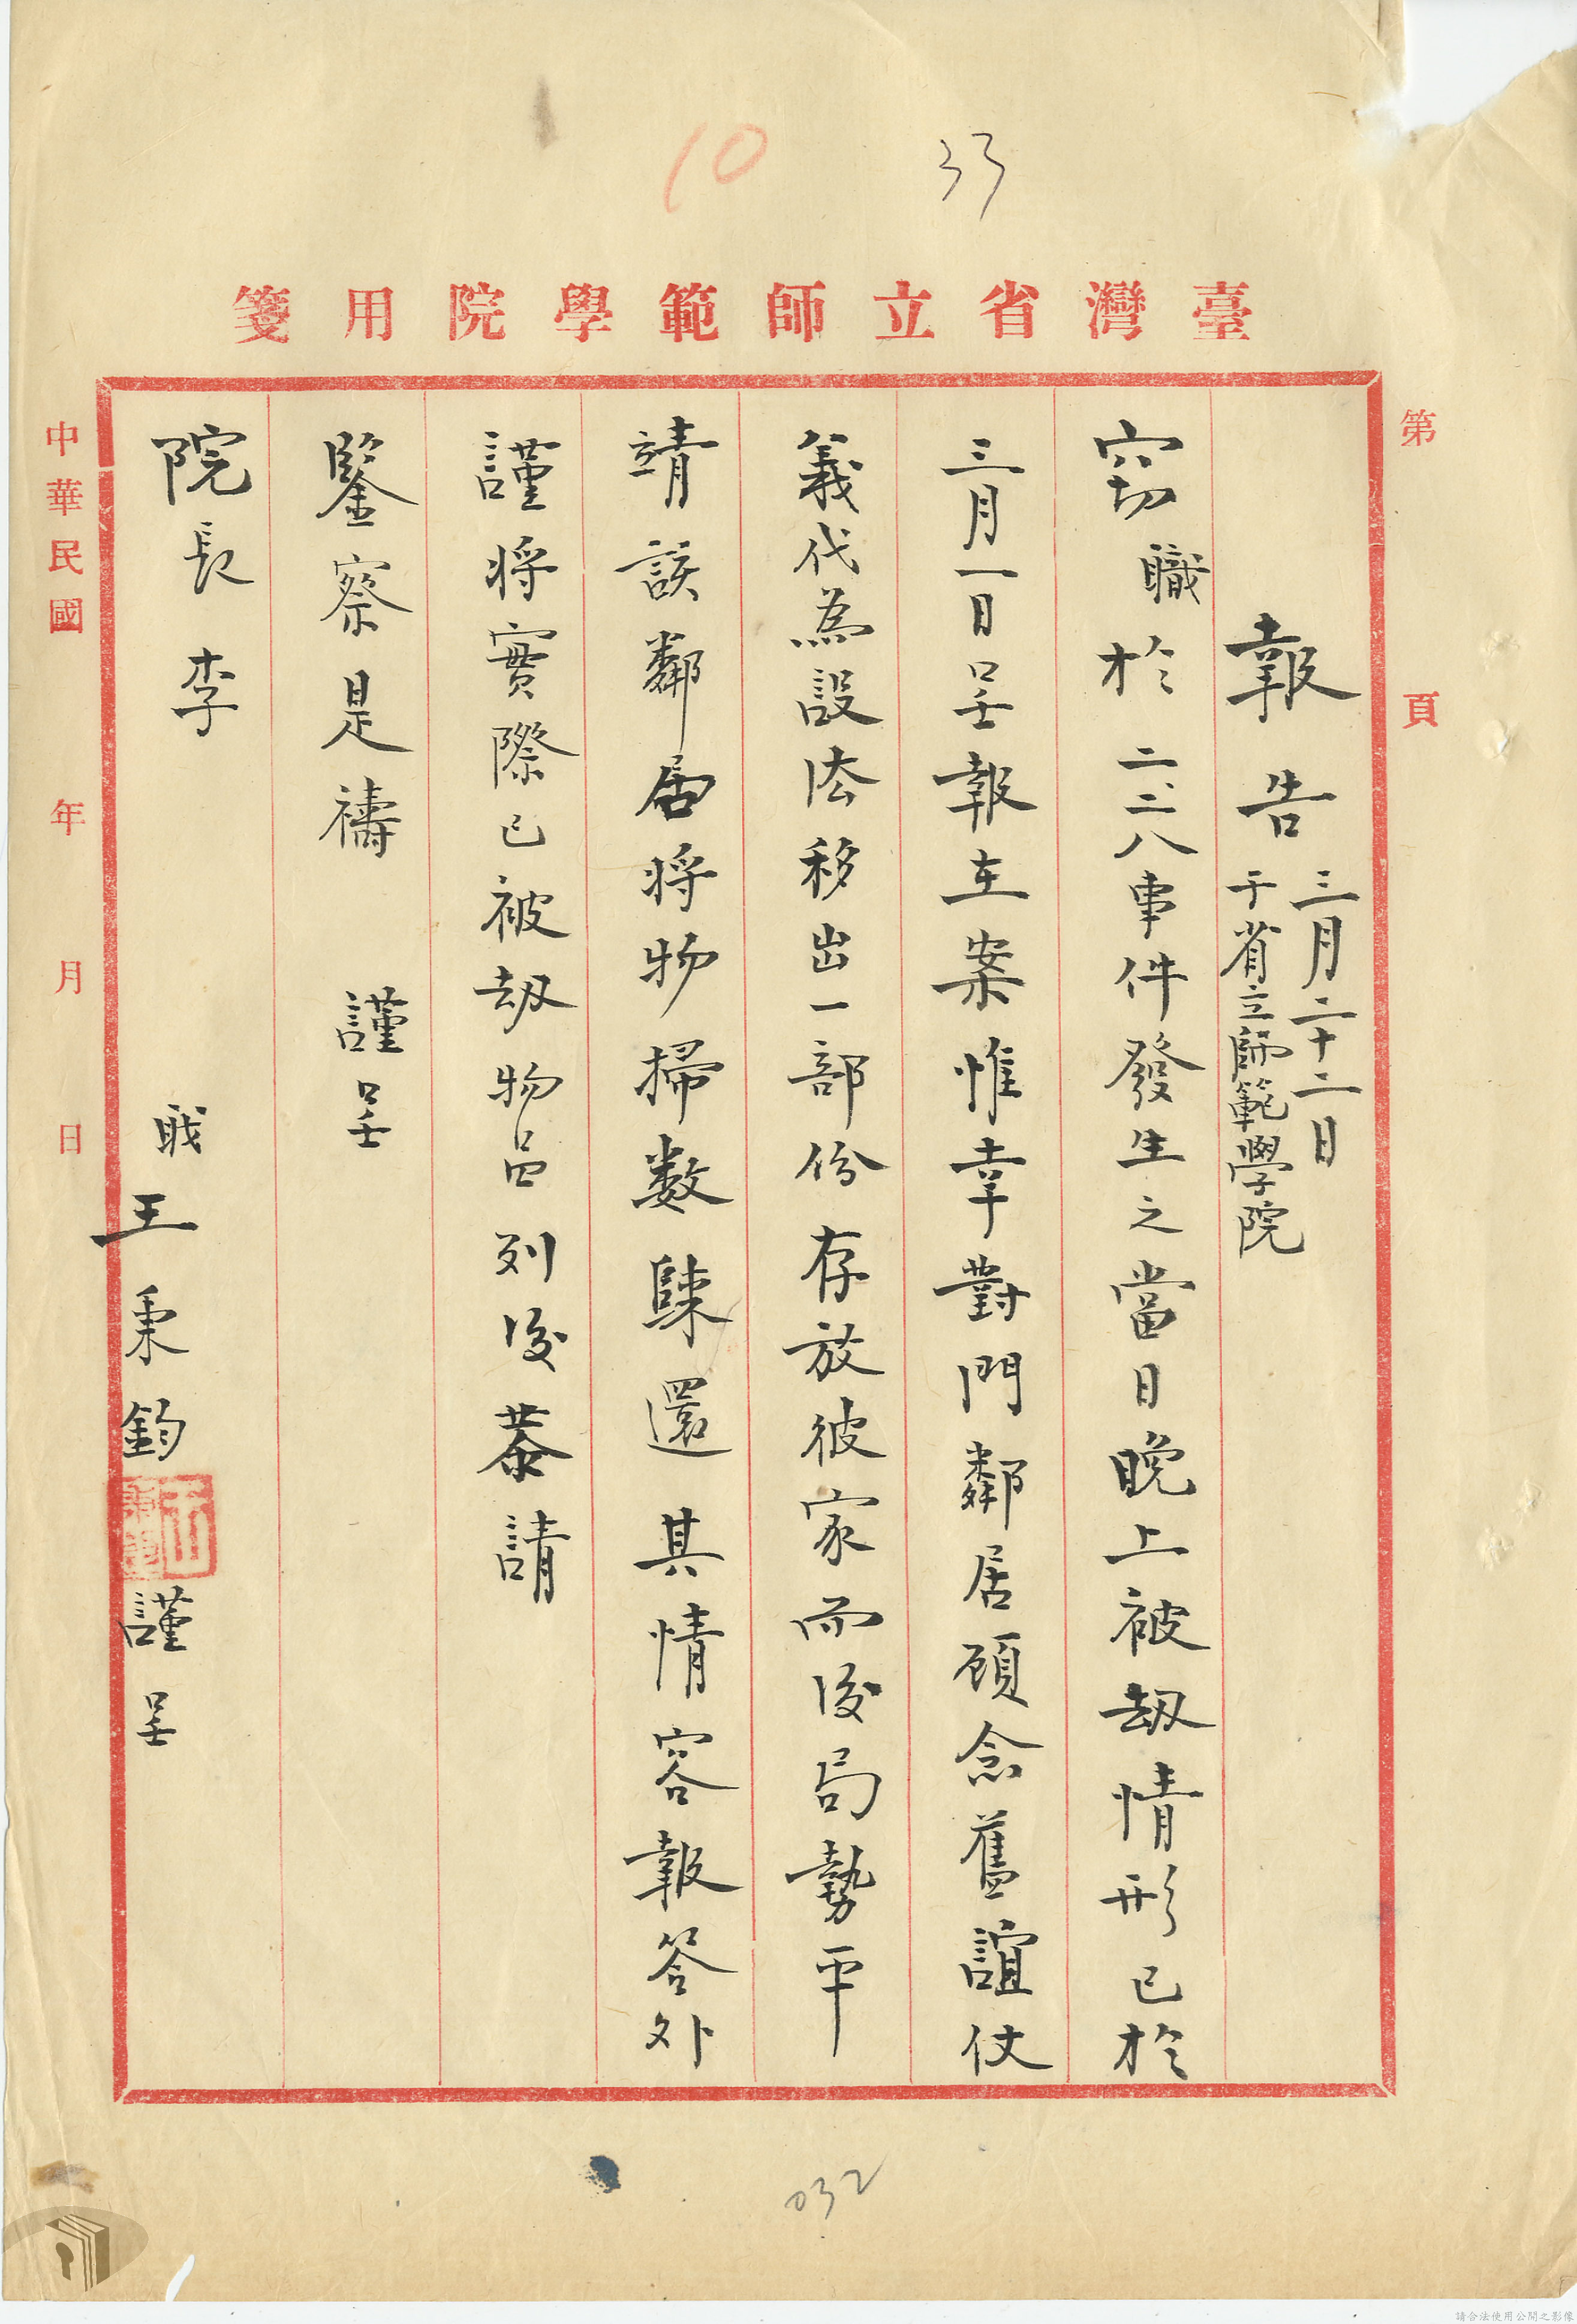 10
33
臺灣省立師範學院用箋
第 頁
報告 三月二十二日
于省立師範學院
窃職於二、二八事件發生之當日晚上被刼情形已於
三月一日呈報在案惟幸對門鄰居顧念舊誼仗
義代為設法移出一部份存放彼家而後局勢平
靖該鄰居將物掃数歸還其情容報答外
謹將實際已被刼物品列後恭請
鑒察是禱 謹呈
院長李
職王秉鈞謹呈
中華民國 年 月 日
032
請合法使用公開之影像